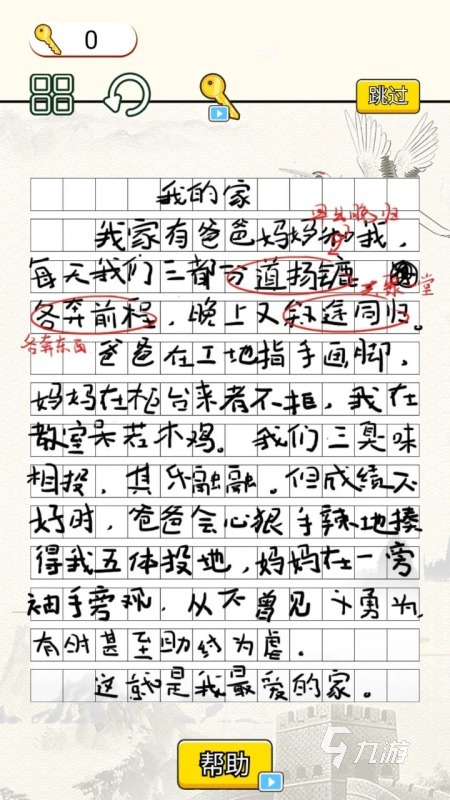 0
跳过
我的家
早出晚归
我家有爸爸妈妈和我,
每天我们三都分道扬镳
聚一堂
各奔前程,晚上又殊途同归。
各奔东西
爸爸在工地指手画脚,
妈妈在柜台来者不拒,我在
教室呆若木鸡。我们三臭味
相投,其乐融融。但成绩不
好时,爸爸会心狠手辣地揍
得我五体投地,妈妈在一旁
袖手旁观,从不曾见 勇为,
有时甚至助纣为虐.
这就是我最爱的家。
九游
帮助